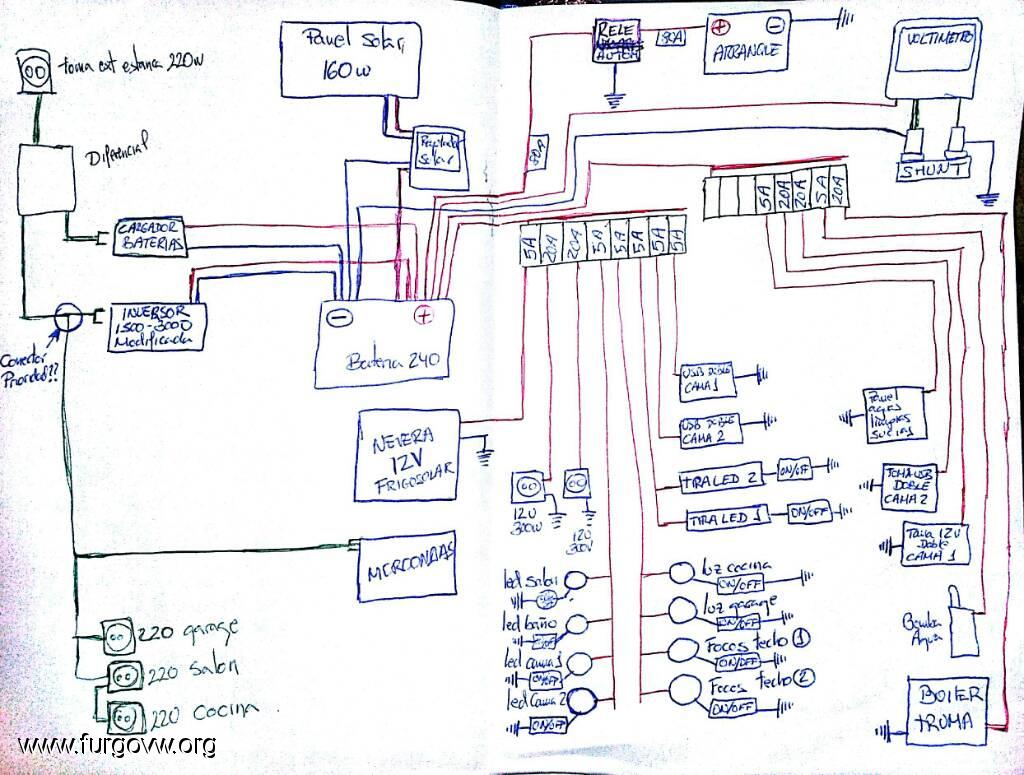 toma ext estanca 220w
Diferencial
Panel Solar
160w
Regulador
Solar
RELE
AUTOM
80A
+
-
ARRANQUE
VOLTIMETRO
SHUNT
80A
CARGADOR
BATERIAS
INVERSOR
1500-3000
Modificada
Conector
Prioridad??
-
+
Bateria 240
5A
20A
20A
5A
5A
5A
5A
5A
5A
20A
20A
5A
20A
NEVERA
12V
FRIGOSOLAR
MICROONDAS
220 garage
220 salon
220 cocina
12V
300W
12V
USB DOBLE
CAMA 1
USB DOBLE
CAMA 2
TIRA LED 2
ON/OFF
TIRA LED 1
ON/OFF
led salon
led baño
led cama 1
ON/OFF
led cama 2
ON/OFF
luz cocina
ON/OFF
luz garage
ON/OFF
Focos techo 1
ON/OFF
Focos techo 2
ON/OFF
Panel
aguas
limpias
sucias
TOMA USB
DOBLE
CAMA 2
Toma 12v
Doble
CAMA 1
Bomba
Agua
BOILER
TRUMA
www.furgovw.org